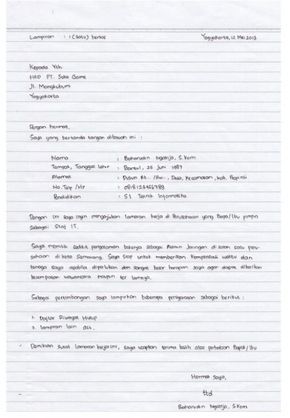 Lampiran : 1 (satu) berkas Yogyakarta, 12 Mei 2013
Kepada Yth
HRD PT. Suka Game
Jl. Mangkubumi
Yogyakarta
Dengan hormat,
Saya yang bertanda tangan dibawah ini :
Nama : Baharudin Ngarjo, S.Kom
Tempat, Tanggal lahir : Bantul, 25 Juni 1987
Alamat : Dusun Rt. /Rw. , Desa, Kecamatan, Kab, Propinsi
No. Telp / Hp : 0818123456789
Pendidikan : S1 Teknik Informatika
Dengan ini saya ingin mengajukan lamaran kerja di Perusahaan yang Bapak/Ibu pimpin
sebagai Staf IT.
Saya memiliki sedikit pengalaman bekerja sebagai Admin Jaringan di salah satu peru-
sahaan di kota Semarang. Saya siap untuk memberikan kompetensi waktu dan
tenaga saya apabila diperlukan dan sangat besar harapan saya agar dapat diberikan
kesempatan wawancara maupun tes lainnya.
Sebagai pertimbangan saya lampirkan beberapa persyaratan sebagai berikut :
1. Daftar Riwayat Hidup
2. Lampiran lain dst.
Demikian surat lamaran kerja ini, saya ucapkan terima kasih atas perhatian Bapak/Ibu
Hormat Saya,
ttd
Baharudin Ngarjo, S.Kom